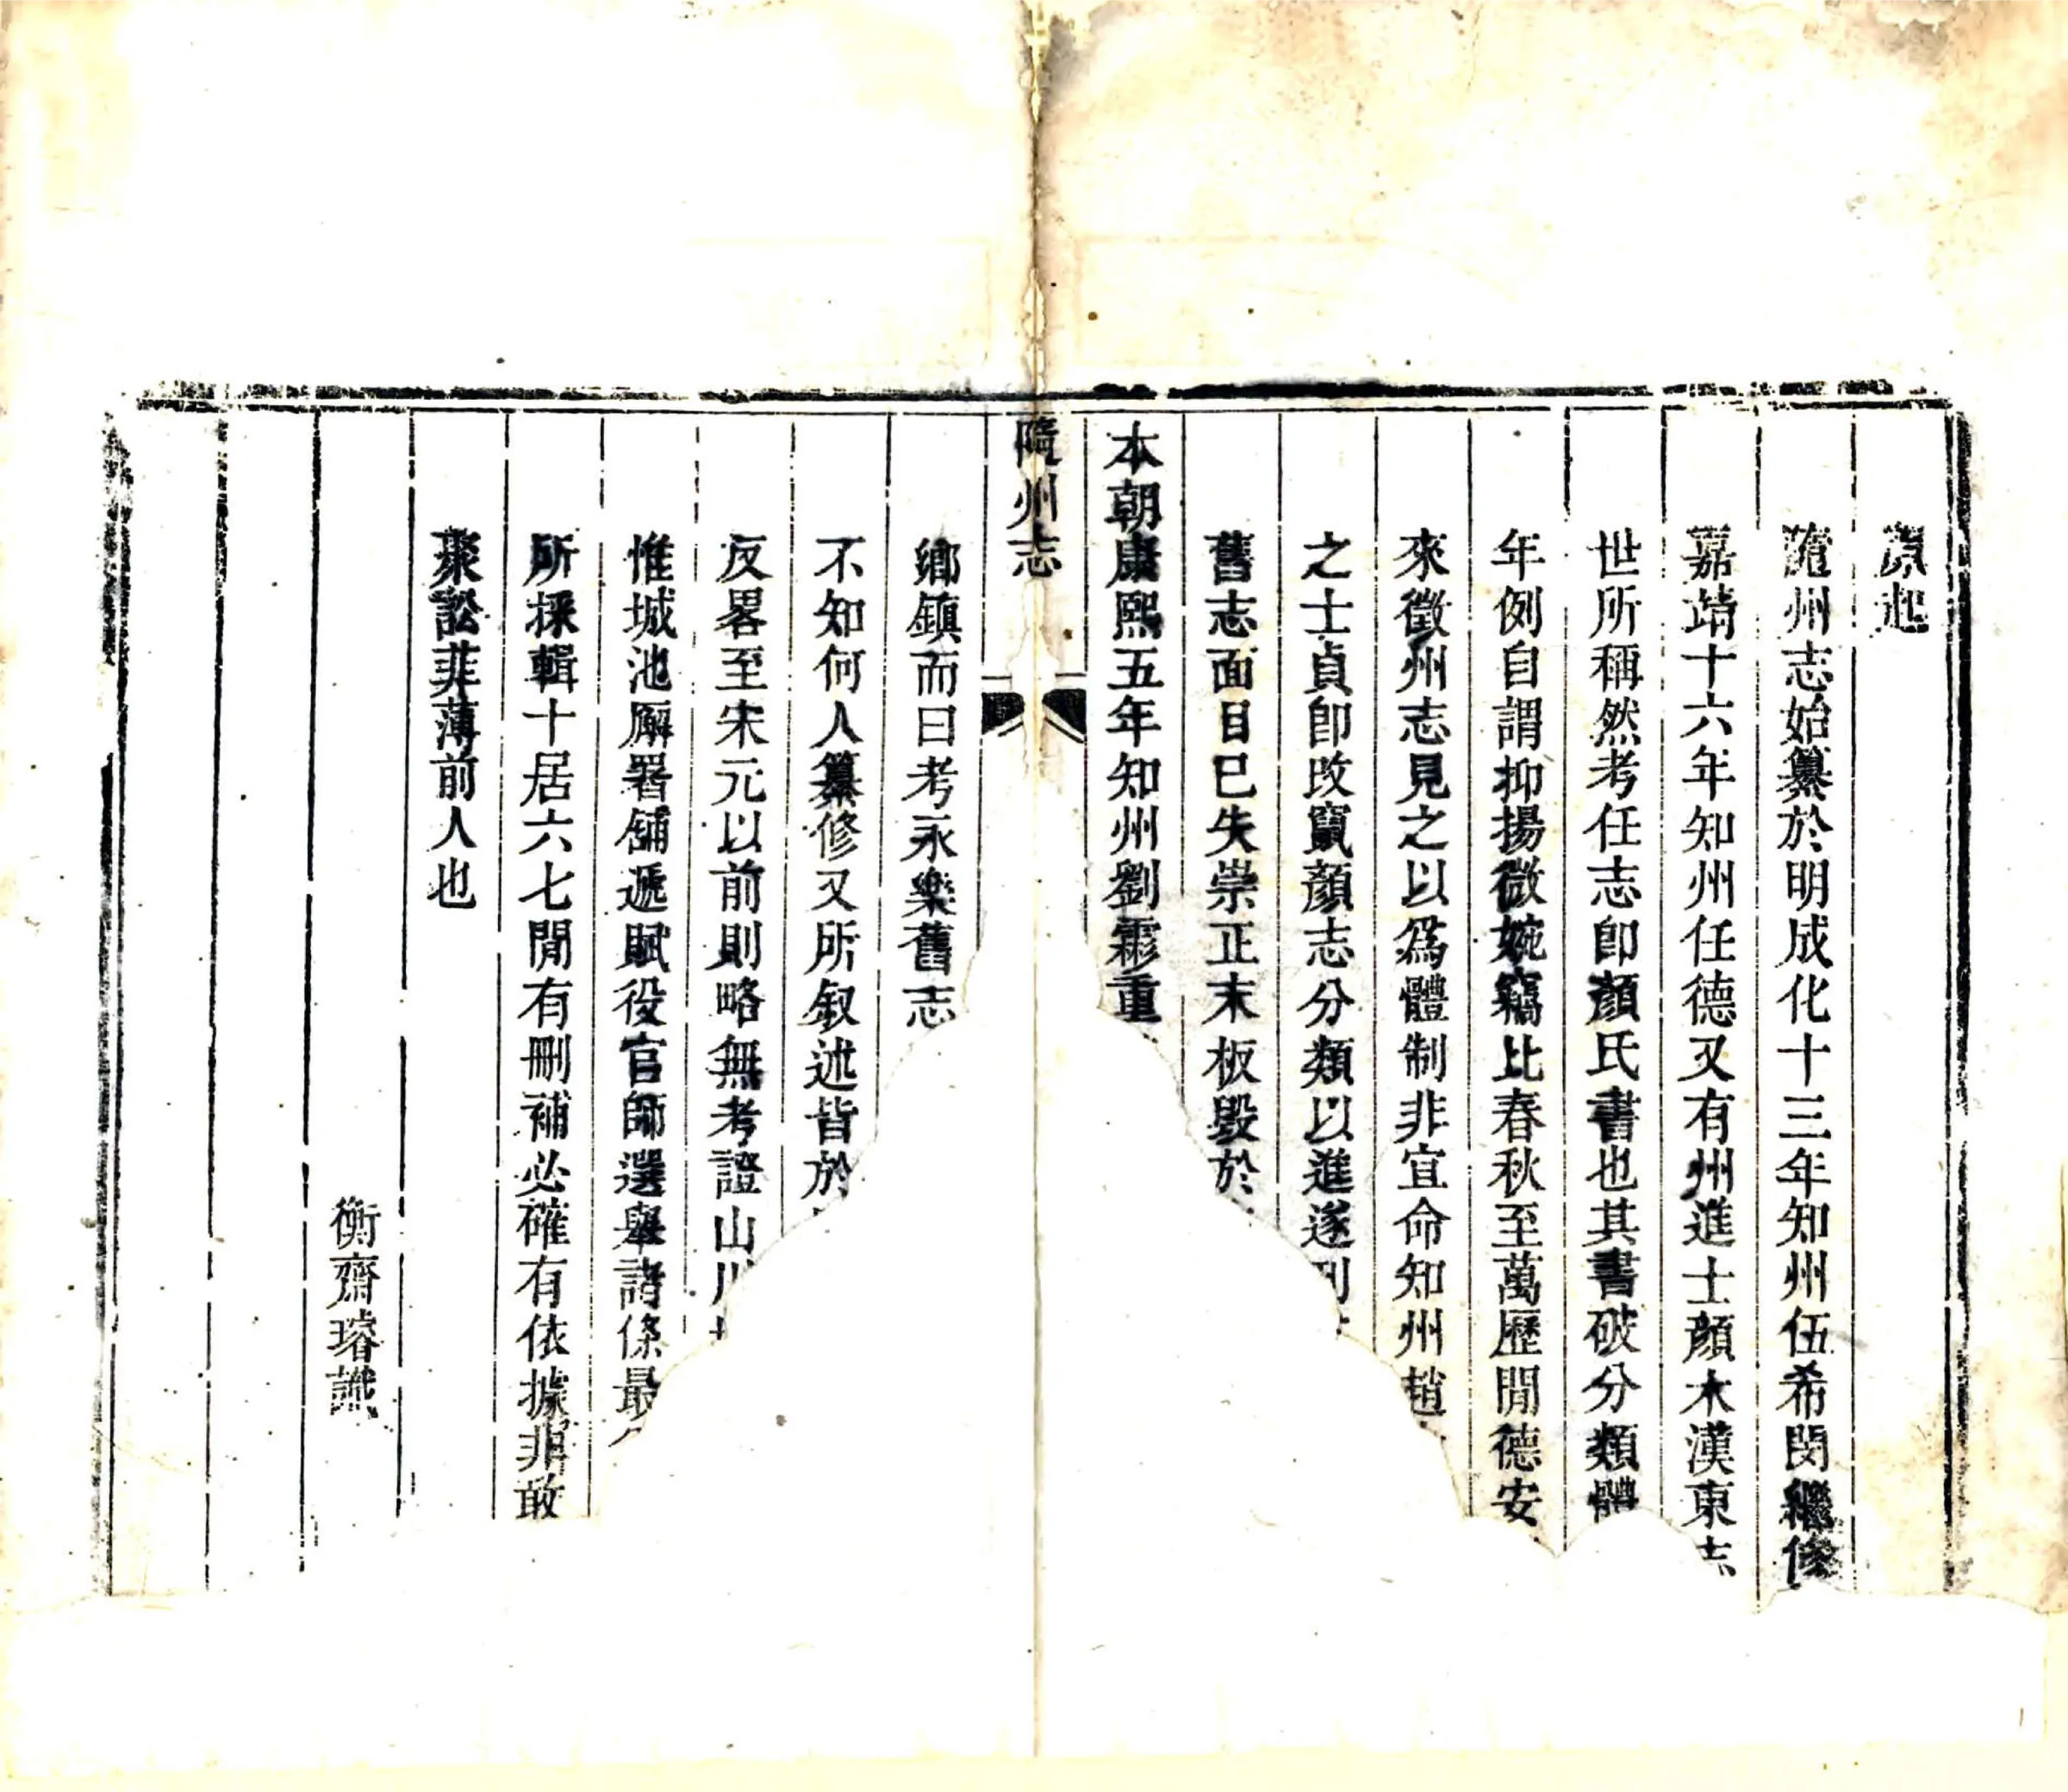 原起
隨州志始纂於明成化十三年知州伍希閔繼修
嘉靖十六年知州任德又有州進士顏木漢東志
世所稱然考任志卽顏氏書也其書破分類體
年例自謂抑揚微婉竊比春秋至萬歷間德安
來徵州志見之以爲體制非宜命知州趙
之士貞卽改竄顏志分類以進遂刊
舊志面目已失崇正末板毀於
本朝康熙五年知州劉霦重
隨州志
鄉鎮而曰考永樂舊志
不知何人纂修又所叙述皆於
反畧至宋元以前則略無考證山川
惟城池廨署舖遞賦役官師選舉諸條最
所採輯十居六七間有刪補必確有依據非敢
聚訟菲薄前人也
衡齋璿識